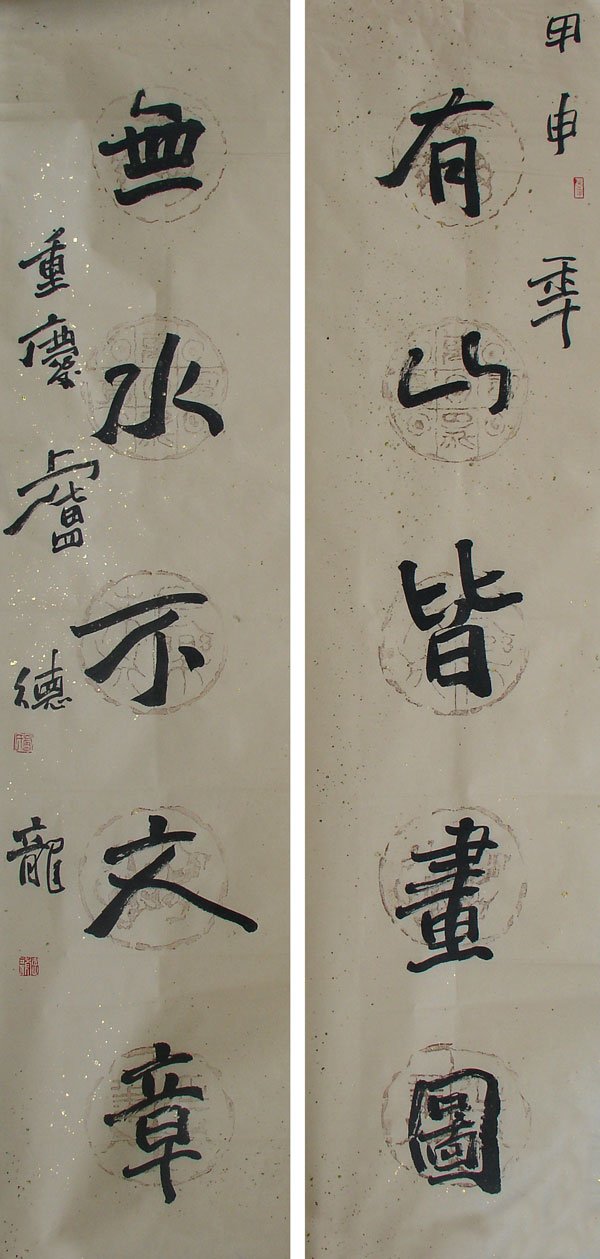 甲申秊
有山皆畫圖
無水不文章
重慶盧德龍